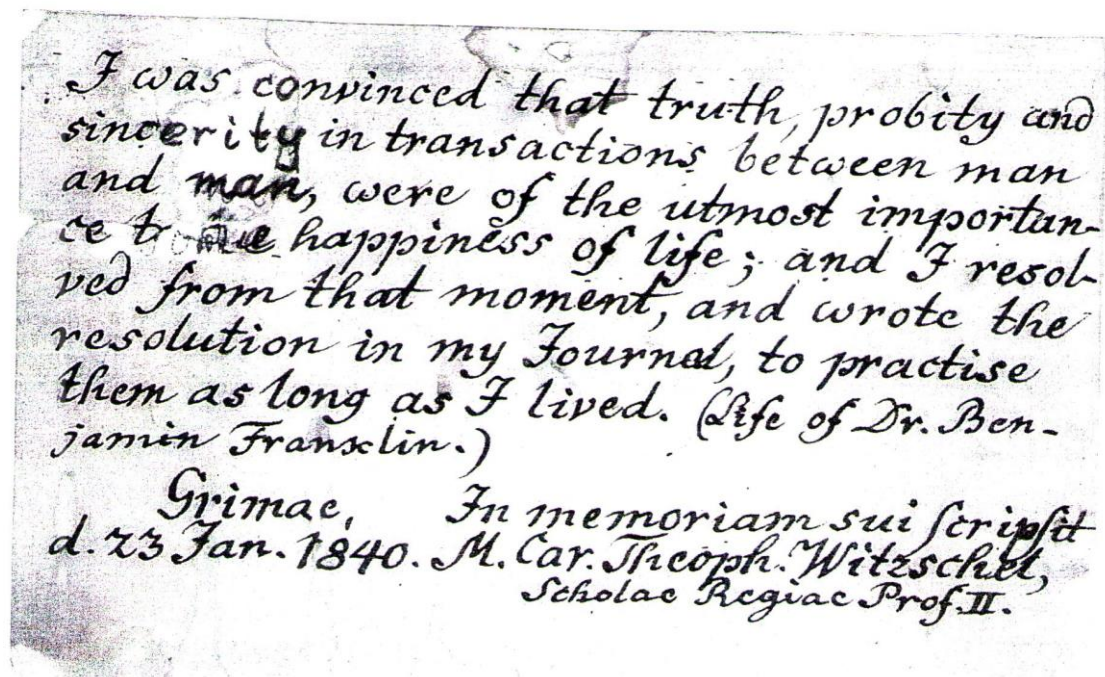 I was convinced that truth, probity and
sincerity in transactions between man
and man, were of the utmost importan-
ce to the happiness of life; and I resol-
ved from that moment, and wrote the
resolution in my Journal, to practise
them as long as I lived. (Life of Dr. Ben-
jamin Franklin.)
Grimae, In memoriam sui scripsit
d. 23 Jan. 1840. M. Car. Theoph. Witzschel,
Scholae Regiae Prof. II.